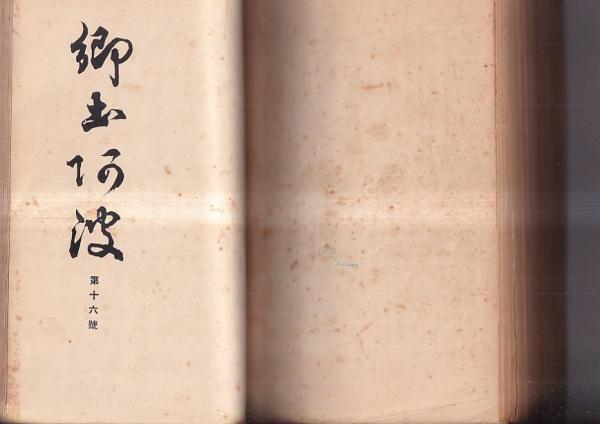 郷土阿波
第十六號